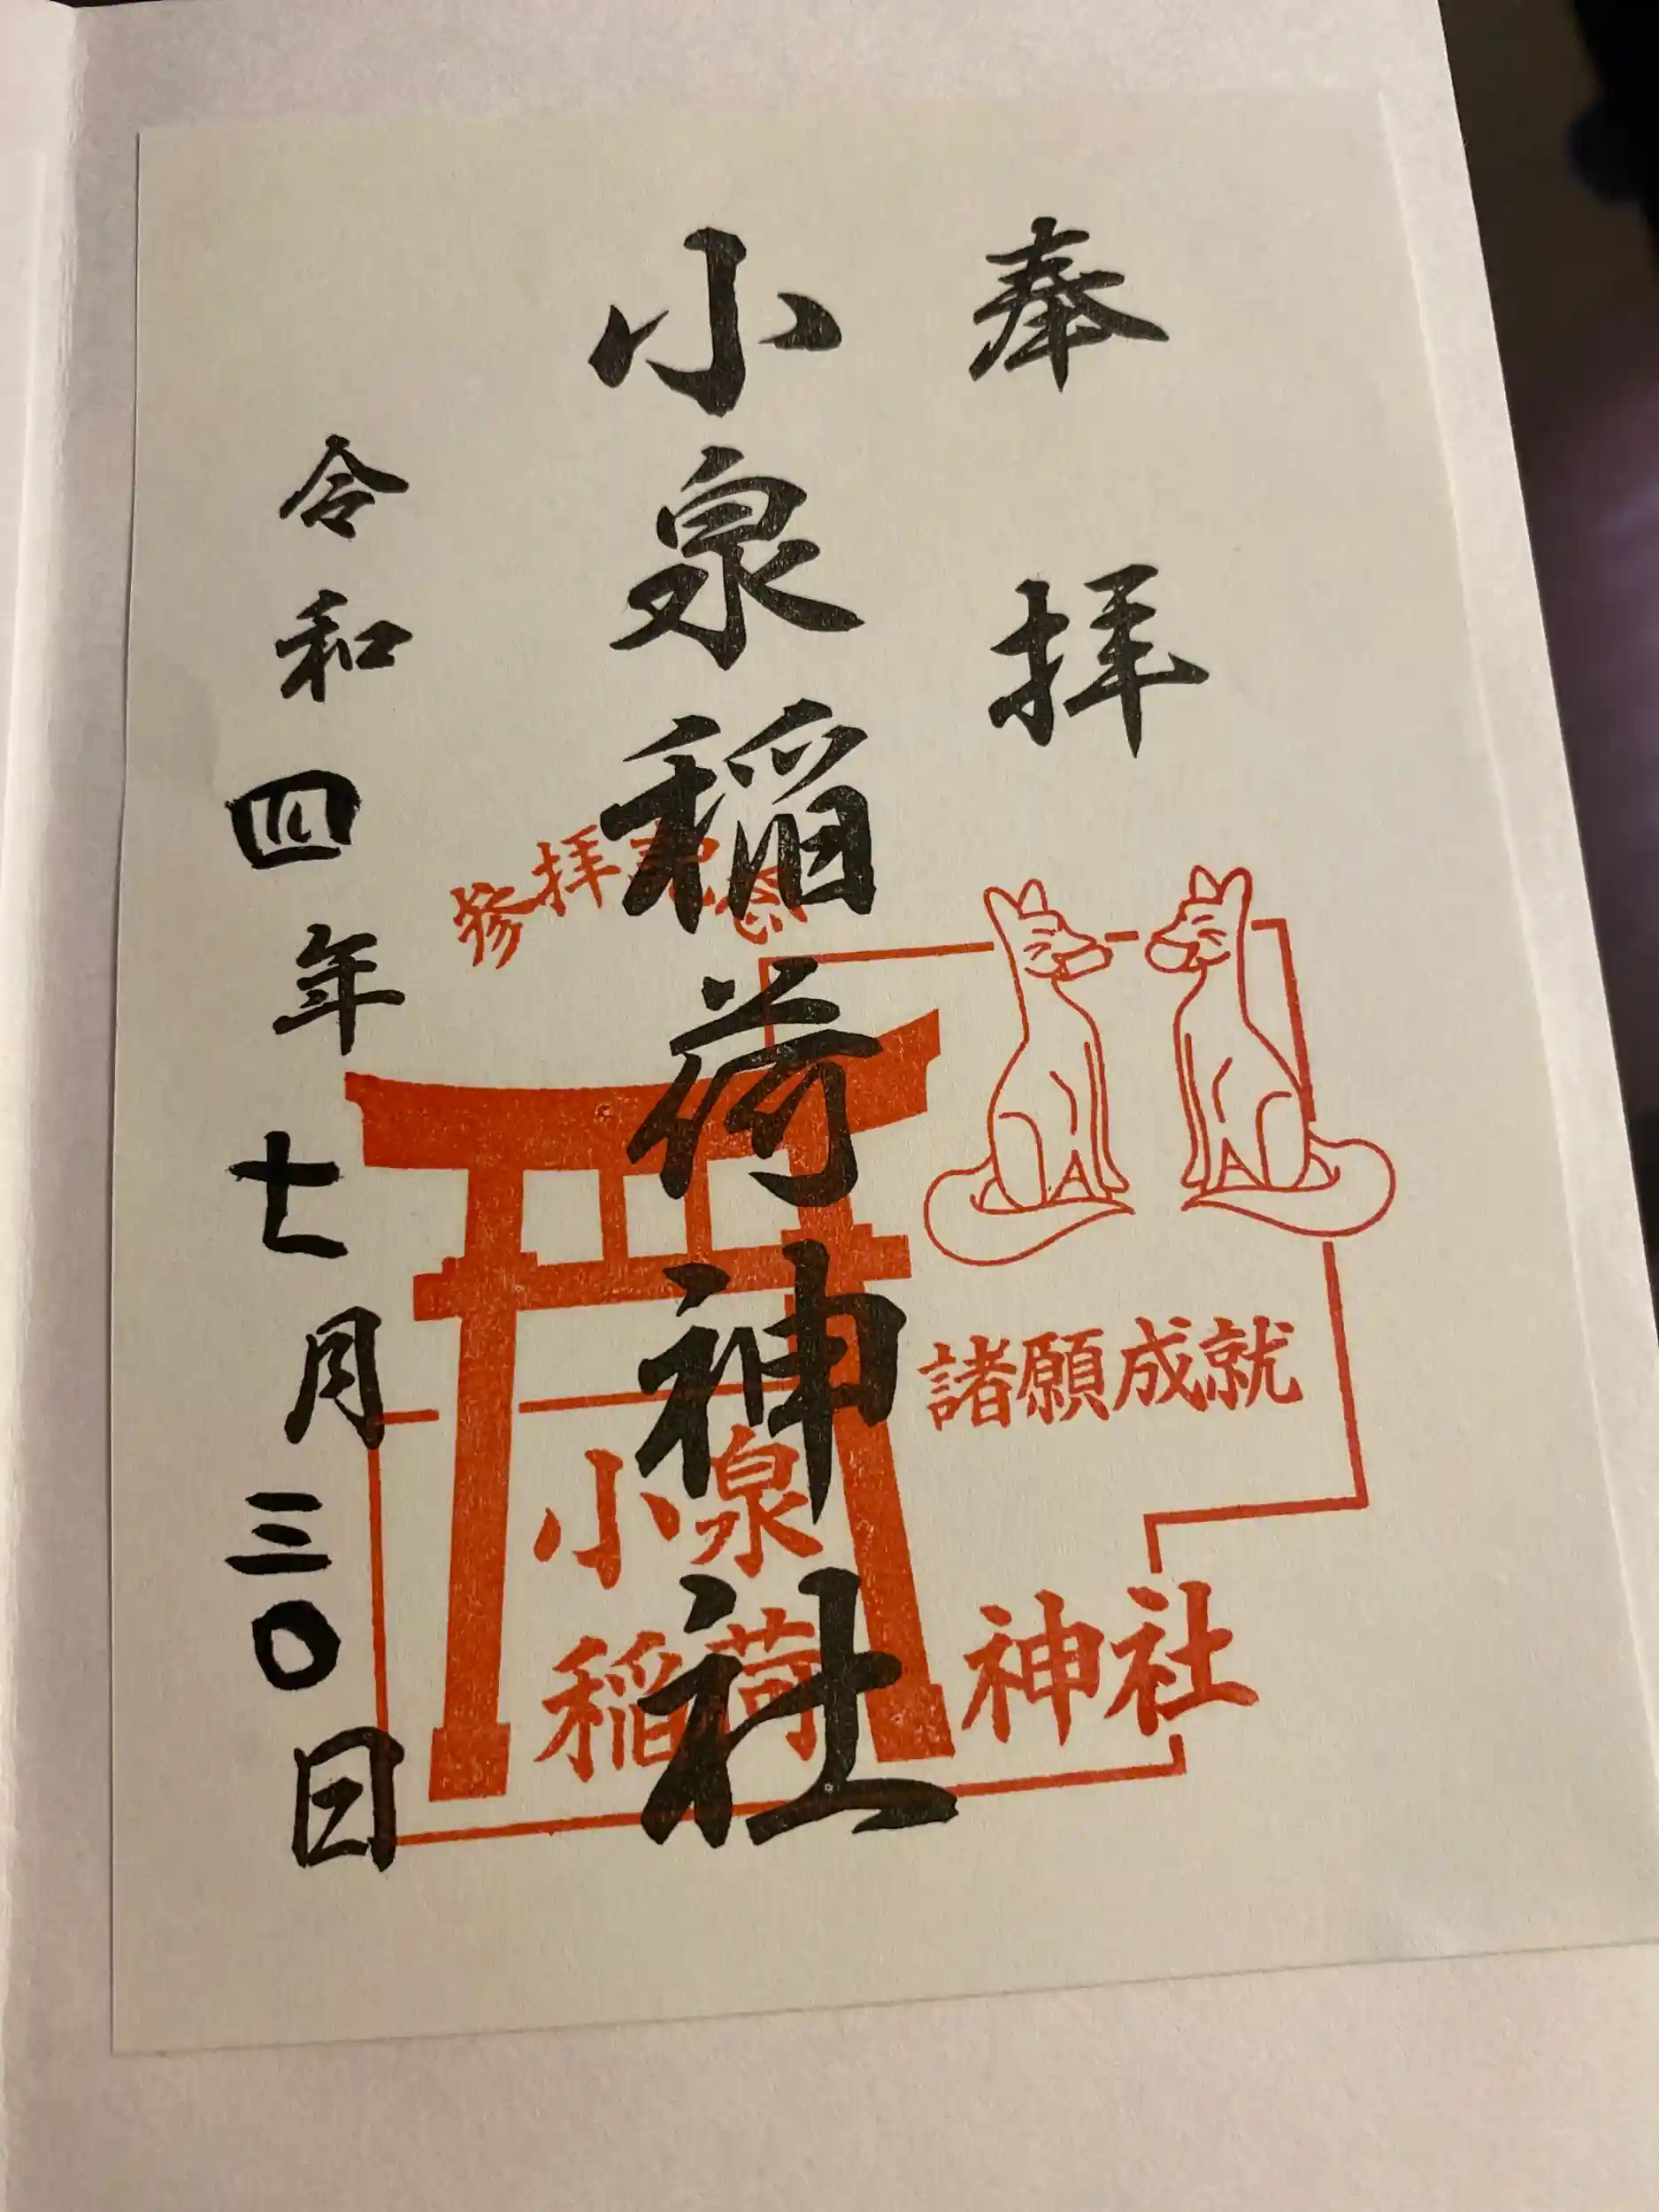 奉拝
小泉稲荷神社
令和四年七月三〇日
参拝記念
諸願成就
小泉
稲荷
神社